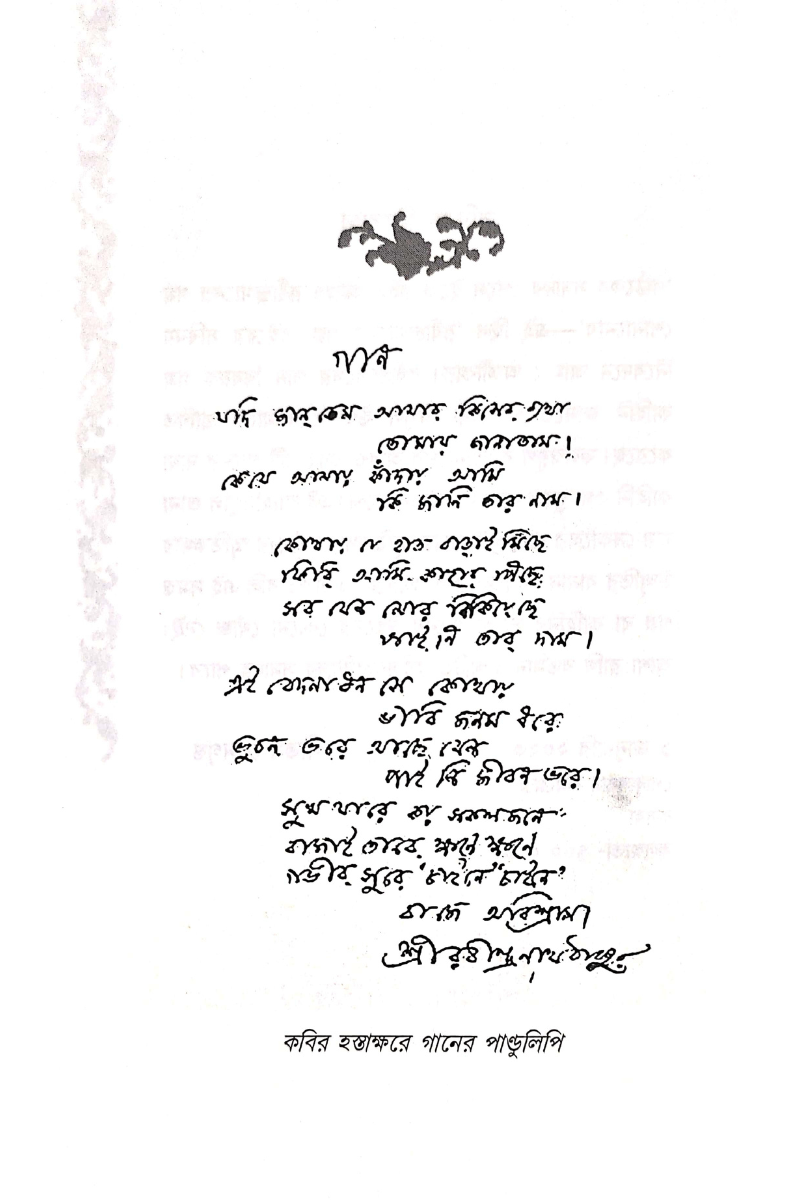 গান
যদি জানতেম আমার কিসের ব্যথা
তোমায় জানাতাম।
কে যে আমায় কাঁদায় আমি
কি জানি তার নাম।
কোথায় যে হাত বাড়াই মিছে
ফিরি আমি কাহার পিছে
সব যেন মোর বিকিয়েছে
পাই নি তার দাম।
এই বেদনার ধন সে কোথায়
ভাবি জনম ধরে
ভুবন ভরে আছে যেন
পাই নি জীবন ভরে।
সুখ যারে কয় সকল জনে
বাজাই তারে ক্ষণে ক্ষণে
গভীর সুরে "চাইনে" "চাইনে"
বাজে অবিশ্রাম।
শ্রীরবীন্দ্রনাথ ঠাকুর
কবির হস্তাক্ষরে গানের পাণ্ডুলিপি